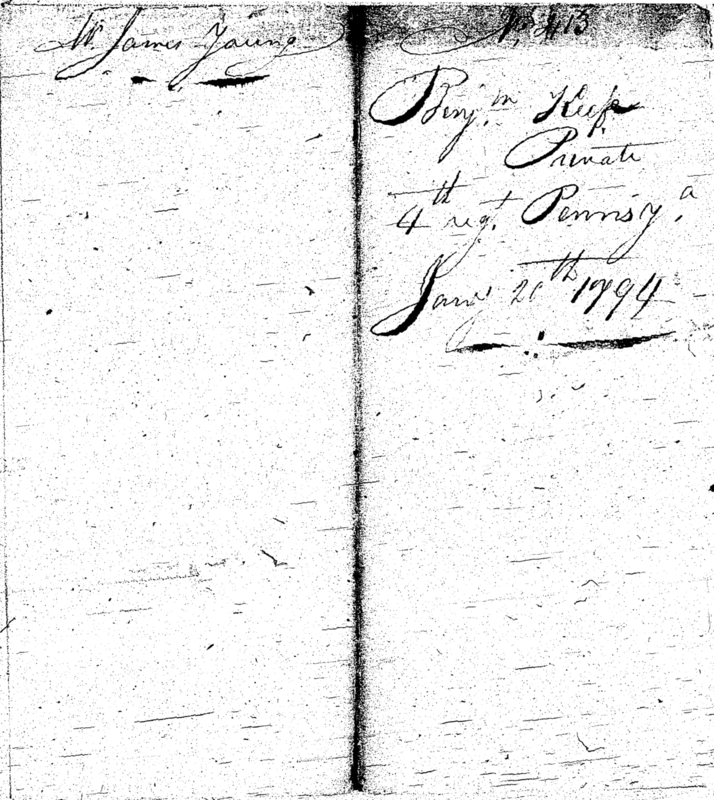 Mr. James Young
No. 413
Benj.m Keep
Private
4th regt. Pennsy.a
Jany 20th 1794